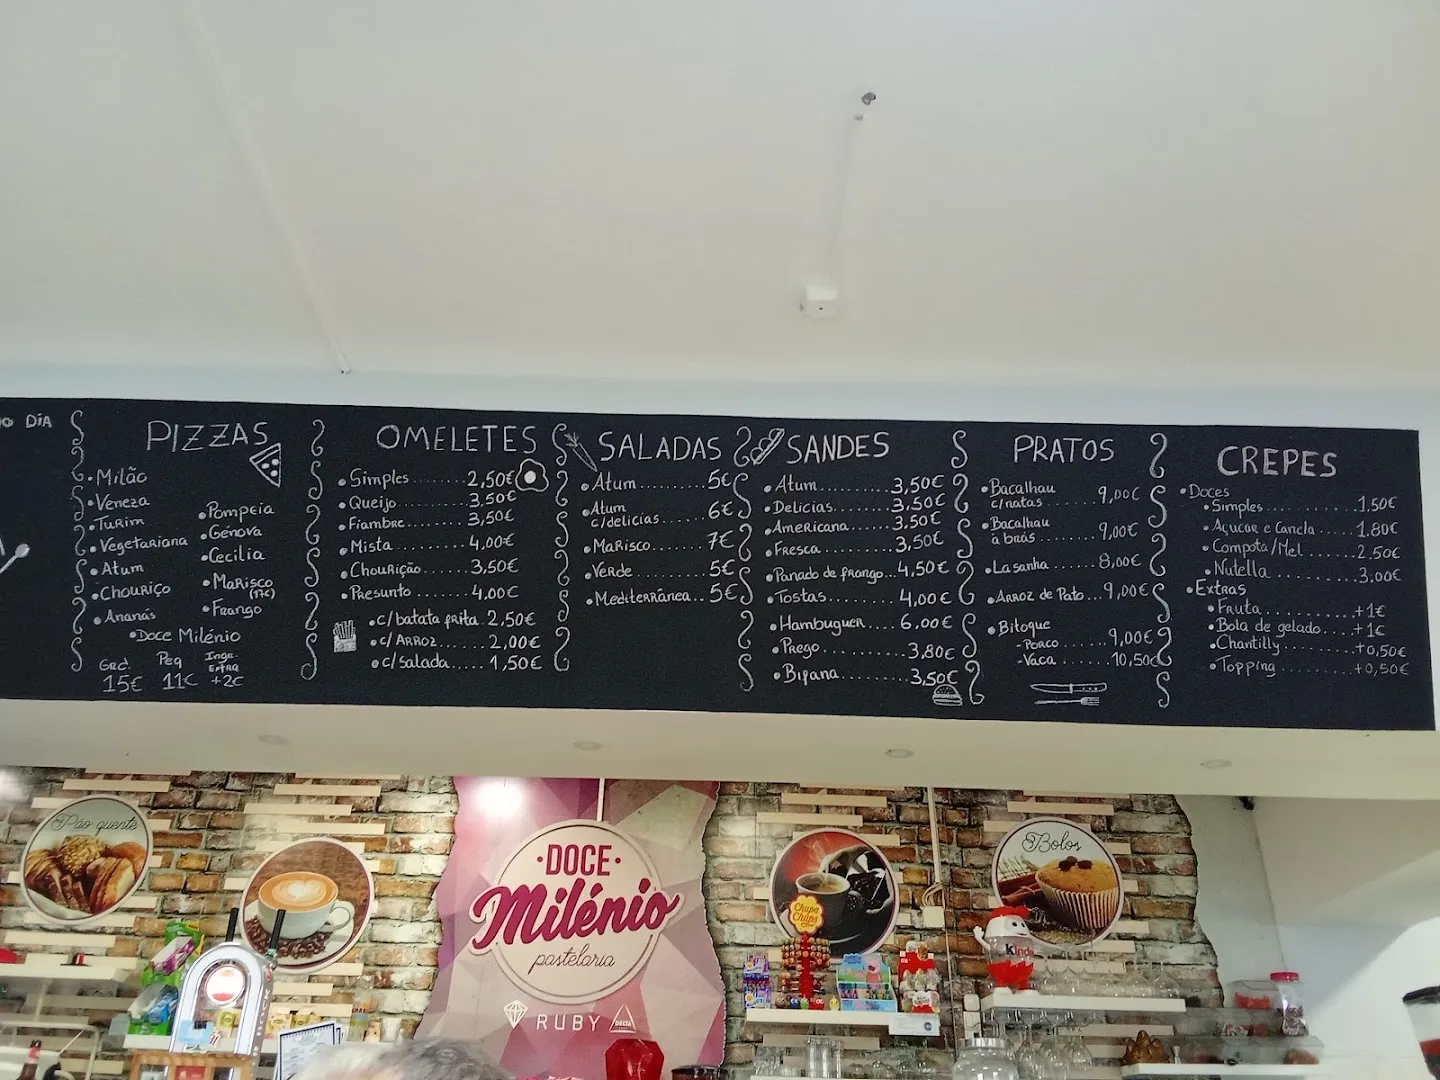 DIA
PIZZAS
•Milão
•Veneza
•Turim
•Vegetariana
•Atum
•Chouriço
•Ananás
•Pompeia
•Génova
•Cecilia
•Marisco
(17€)
•Frango
•Doce Milénio
Grd. Peq Ingr. Extra
15€ 11€ +2€
OMELETES
•Simples........2,50€
•Queijo.........3,50€
•Fiambre........3,50€
•Mista..........4,00€
•Chourição......3,50€
•Presunto.......4,00€
•c/batata frita.2,50€
•c/Arroz........2,00€
•c/salada.....1,50€
SALADAS
•Atum........5€
•Atum
c/delícias......6€
•Marisco........7€
•Verde..........5€
•Mediterrânea..5€
SANDES
•Atum...........3,50€
•Delícias.......3,50€
•Americana......3,50€
•Fresca.........3,50€
•Panado de frango...4,50€
•Tostas.........4,00€
•Hamburguer....6,00€
•Prego..........3,80€
•Bifana........3,50€
PRATOS
•Bacalhau
c/natas........9,00€
•Bacalhau
à brás.........9,00€
•Lasanha........8,00€
•Arroz de Pato...9,00€
•Bitoque
-Porco.........9,00€
-Vaca......10,50€
CREPES
•Doces
•Simples............1,50€
•Açucar e Canela...1,80€
•Compota/Mel.......2,50€
•Nutella...........3,00€
•Extras
•Fruta.........+1€
•Bola de gelado....+1€
•Chantilly.........+0,50€
•Topping..........+0,50€
Pão quente
•DOCE•
Milénio
pastelaria
RUBY
DELTA
Chupa
Chups
Bolos
Kinder